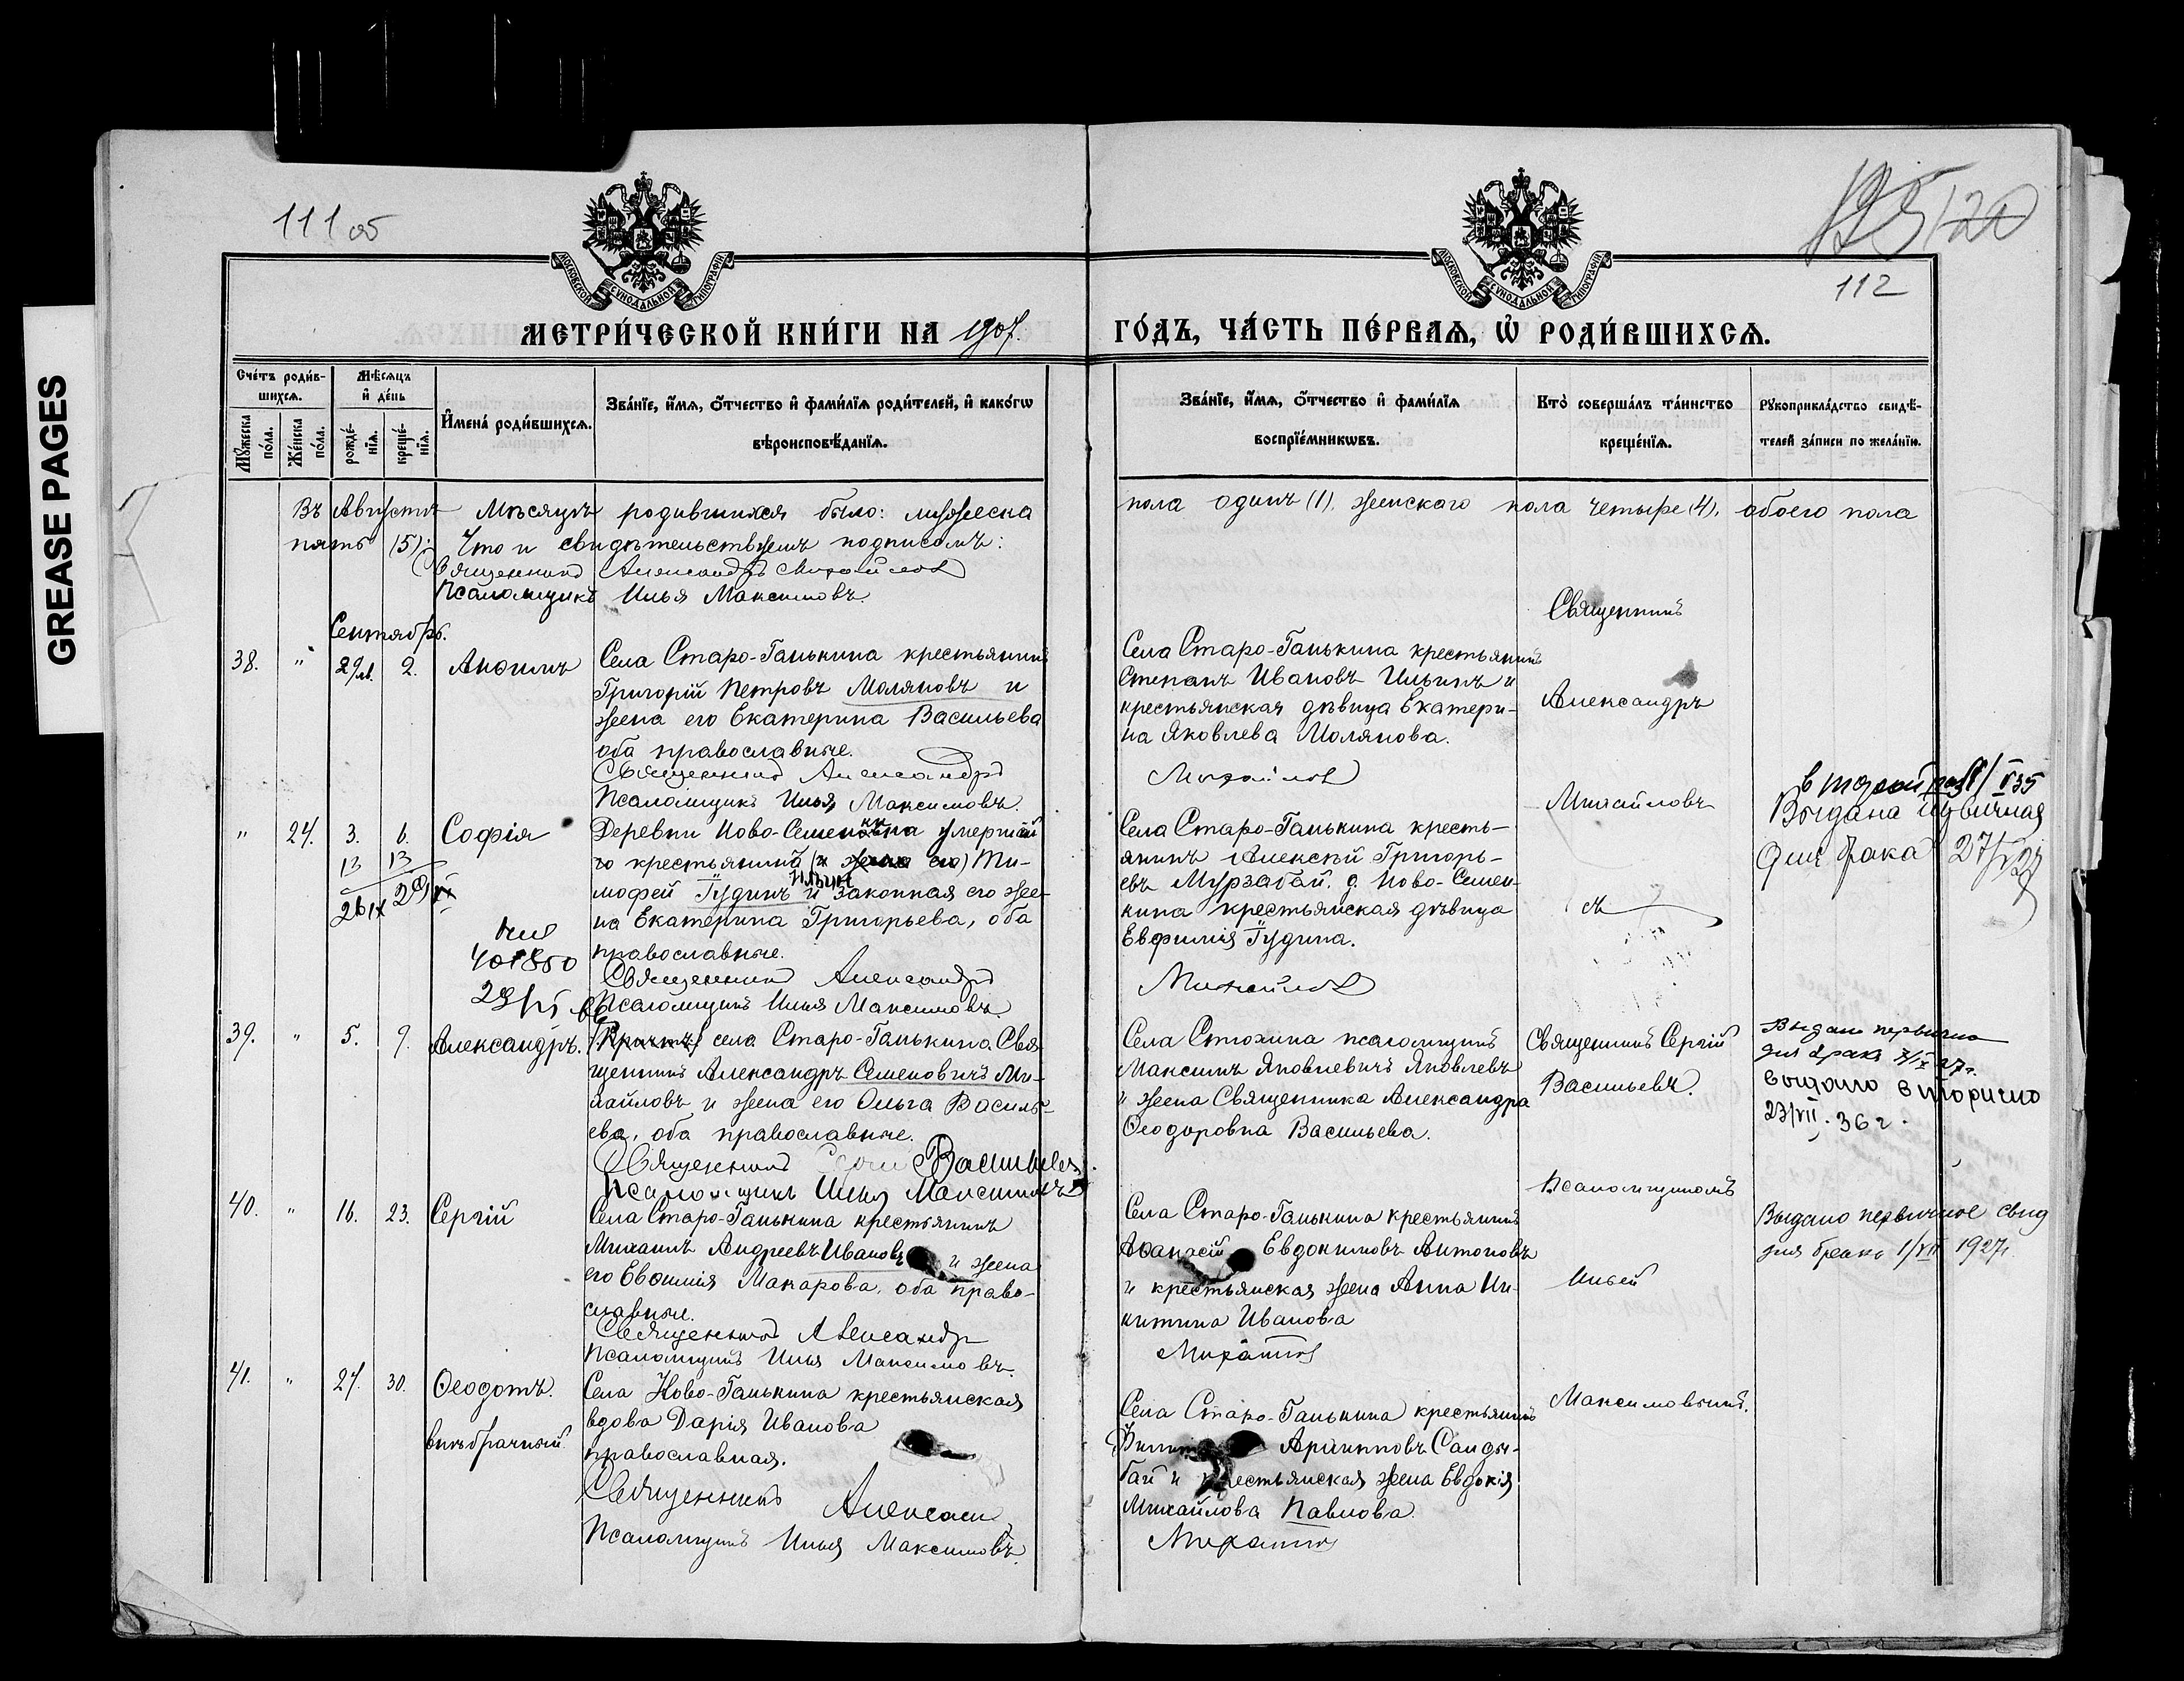 GREASE PAGES
111 об
120
112
МОСКОВСКОЙ СѴНОДАЛЬНОЙ ТИПОГРАФІИ
МОСКОВСКОЙ СѴНОДАЛЬНОЙ ТИПОГРАФІИ
МЕТРИ́ЧЕСКОЙ КНИ́ГИ НА 1907. ГО́ДЪ, ЧА́СТЬ ПЕ́РВАѦ, Ѡ҆ РОДИ́ВШИХСѦ.
Сче́тъ роди́в-
шихсѧ.
Мꙋ́жеска по́ла.
Же́нска по́ла.
Мѣ́сѧцъ
и҆ де́нь
рожде́-
нїѧ.
креще́-
нїѧ.
И҆мена̀ роди́вшихсѧ.
Зва́нїе, и҆́мѧ, ѻ҆́тчество и҆ фами́лїѧ роди́телей, и҆ како́гѡ
вѣроисповѣ́данїѧ.
Зва́нїе, и҆́мѧ, ѻ҆́тчество и҆ фами́лїѧ
воспрїе́мникѡвъ.
Кто̀ соверша́лъ та́инство
креще́нїѧ.
Рꙋкоприкла́дство свидѣ́-
телей за́писи по жела́нїю.
Въ Августѣ Мѣсяцѣ родившихся было: мужеска пола одинъ (1), женского пола четыре (4), обоего пола
пять (5). Что и свидѣтельствуемъ подписомъ:
Священникъ Александръ Михайловъ
Псаломщикъ Илья Максимовъ.
Сентябрь.
38. " 29 2. Анѳимъ
Села Старо-Ганькина крестьянинъ
Григорій Петровъ Моляновъ и
жена его Екатерина Васильева
оба православные.
Священникъ Александръ
Псаломщикъ Илья Максимовъ.
Села Старо-Ганькина крестьянинъ
Степанъ Ивановъ Ильинъ и
крестьянская дѣвица Екатери-
на Яковлева Молянова.
Михайловъ
Священникъ
Александръ
Михайловъ
съ
" 24. 3. 6. Софія
13 13
26 IX 29
401850
Деревни Ново-Семенкина умершій
крестьянинъ Ти-
мофей Гудинъ и законная его же-
на Екатерина Григорьева, оба
православные.
Священникъ Александръ
Псаломщикъ Илья Максимовъ.
Села Старо-Ганькина кресть-
янинъ Алексѣй Григорь-
евъ Мурзабай. д. Ново-Семен-
кина крестьянская дѣвица
Евфимія Гудина.
Михайловъ
Выдана
для брака 27/V 27
39. " 5. 9. Александръ.
(Причтъ) села Старо-Ганькина. Свя-
щенникъ Александръ Семеновичъ Ми-
хайловъ и жена его Ольга Василь-
ева, оба православные.
Священникъ Сергій Васильевъ.
Псаломщикъ Илья Максимовъ
Села Стюхина псаломщикъ
Максимъ Яковлевичъ Яковлевъ
и жена Священника Александра
Ѳеодоровна Васильева.
Священникъ Сергій
Васильевъ.
Выдано первично
для брака 27 г.
выдано вторично
23/VII. 36 г.
40. " 16. 23. Сергій
Села Старо-Ганькина крестьянинъ
Михаилъ Андреевъ Ивановъ и жена
его Евѳимія Макарова, оба право-
славные.
Священникъ Александръ
Псаломщикъ Илья Максимовъ.
Села Старо-Ганькина крестьянинъ
Аѳанасій Евдокимовъ Антоновъ
и крестьянская жена Анна Ни-
китина Иванова
Михайловъ
Псаломщикомъ
Ильей
Максимовымъ.
Выдано первичное свид
для брака 1/VII 1927 г
41. " 27. 30. Ѳеодотъ.
внѣбрачный
Села Ново-Ганькина крестьянская
вдова Дарія Иванова
православная.
Священникъ Александръ
Псаломщикъ Илья Максимовъ.
Села Старо-Ганькина крестьянинъ
Архипповъ Санды-
бай и крестьянская жена Евдокія
Михайлова Павлова.
Михайловъ